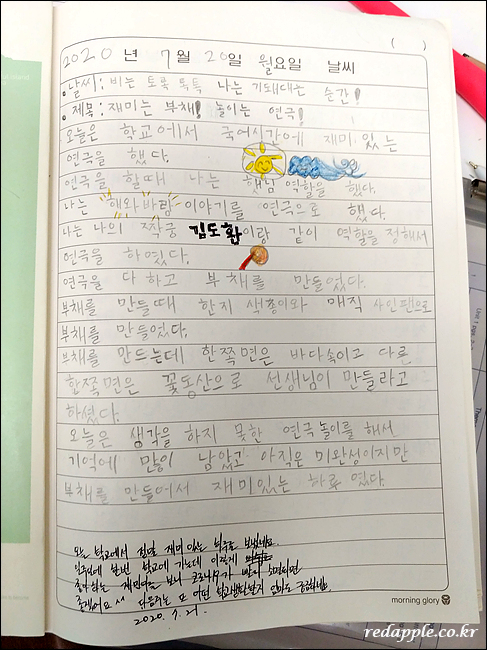 ( )
2020 년 7월 20일 월요일 날씨
·날씨: 비는 토록 톡톡 나는 기대되는 순간!
·제목: 재미는 부채! 놀이는 연극!
오늘은 학교에서 국어시간에 재미있는
연극을 했다.
연극을 할때 나는 햇님 역할을 했다.
나는 해와바람 이야기를 연극으로 했다.
나는 나의 짝궁 김도환이랑 같이 역할을 정해서
연극을 하였다.
연극을 다 하고 부채를 만들었다.
부채를 만들때 한지 색종이와 매직 사인펜으로
부채를 만들었다.
부채를 만드는데 한쪽면은 바다속이고 다른
한쪽면은 꽃동산으로 선생님이 만들라고
하셨다.
오늘은 생각을 하지 못한 연극놀이를 해서
기억에 많이 남았고 아직은 미완성이지만
부채를 만들어서 재미있는 하루 였다.
오늘 학교에서 정말 재미있는 하루를 보냈네요.
일주일에 한번 학교에 가는데 이렇게
좋아하는 보니 코로나가 빨리
좋겠어요 다음주는 또 어떤 엄마도 궁금하네요
2020. 7. 21.
morning glory
redapple.co.kr